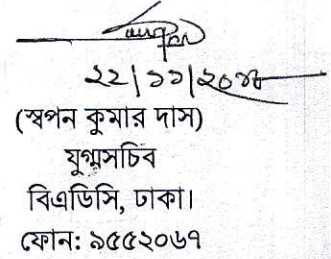 ২২/১১/২০১৮
(স্বপন কুমার দাস)
যুগ্মসচিব
বিএডিসি, ঢাকা।
ফোন: ৯৫৫২০৬৭